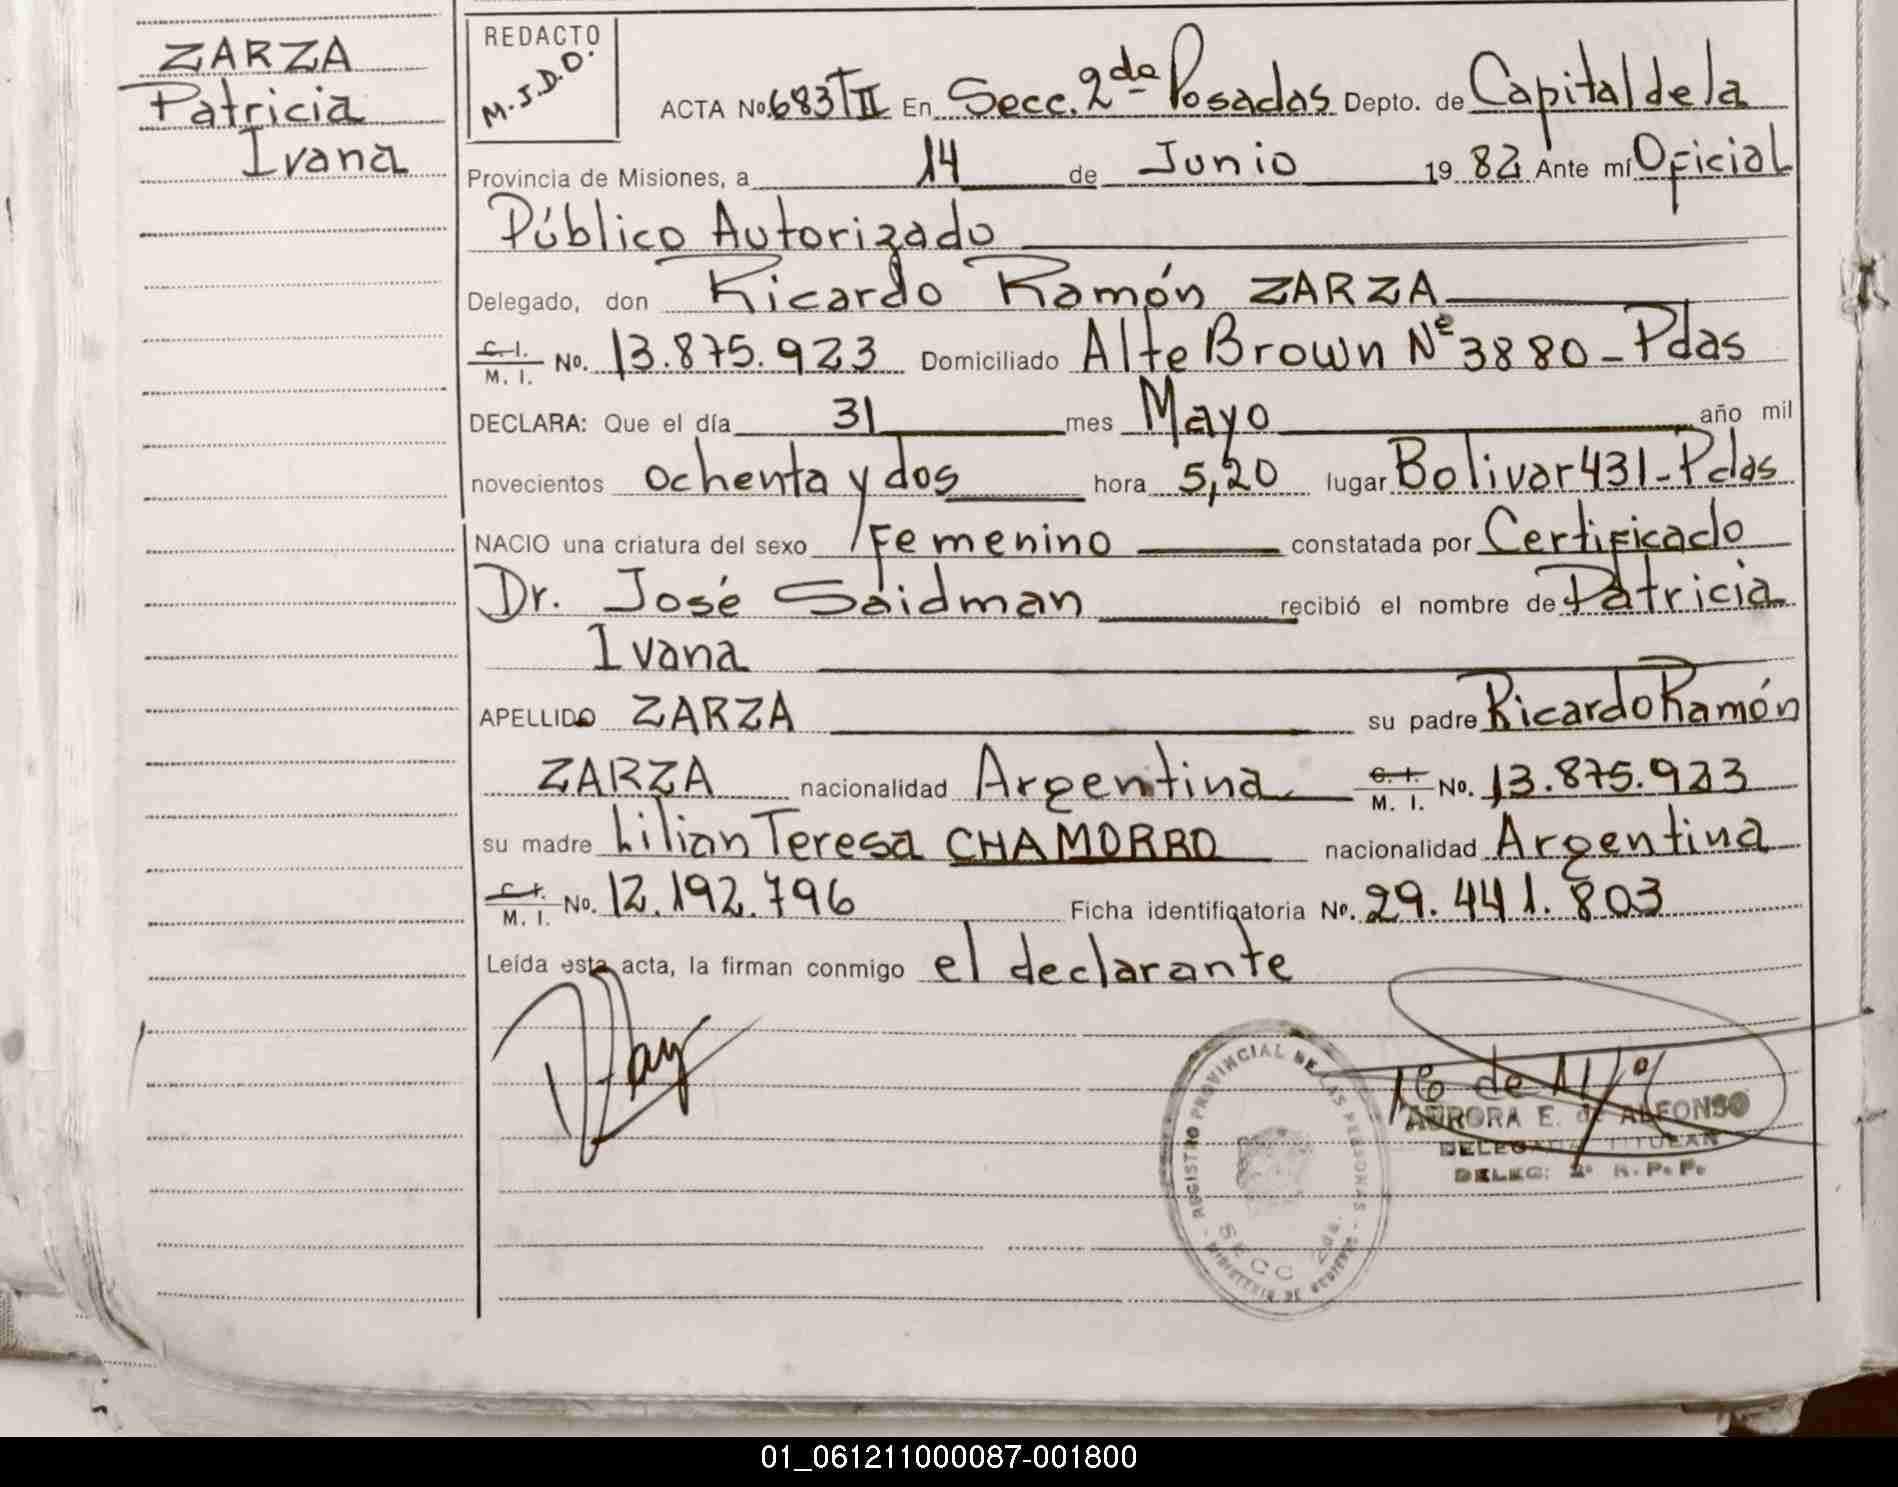 ZARZA
Patricia
Ivana
REDACTO
M.J.D.O.
ACTA No. 683 TII En Secc. 2da Posadas Depto. de Capital de la
Provincia de Misiones, a 14 de Junio 19 82 Ante mí Oficial
Público Autorizado
Delegado, don Ricardo Ramón ZARZA
C. I. M. I. No. 13.875.923 Domiciliado Alte Brown Nº 3880 - Pdas
DECLARA: Que el día 31 mes Mayo año mil
novecientos ochenta y dos hora 5,20 lugar Bolivar 431 - Pdas
NACIO una criatura del sexo Femenino constatada por Certificado
Dr. José Saidman recibió el nombre de Patricia
Ivana
APELLIDO ZARZA su padre Ricardo Ramón
ZARZA nacionalidad Argentina C. I. M. I. No. 13.875.923
su madre Lilian Teresa CHAMORRO nacionalidad Argentina
C. I. M. I. No. 12.192.796 Ficha identificatoria No. 29.441.803
Leída esta acta, la firman conmigo el declarante
REGISTRO PROVINCIAL DE LAS PERSONAS
SECC 2da.
MINISTERIO DE GOBIERNO
AURORA E. de ALFONSO
DELEGADA TITULAR
DELEG: 2º R. P. P.
01_061211000087-001800